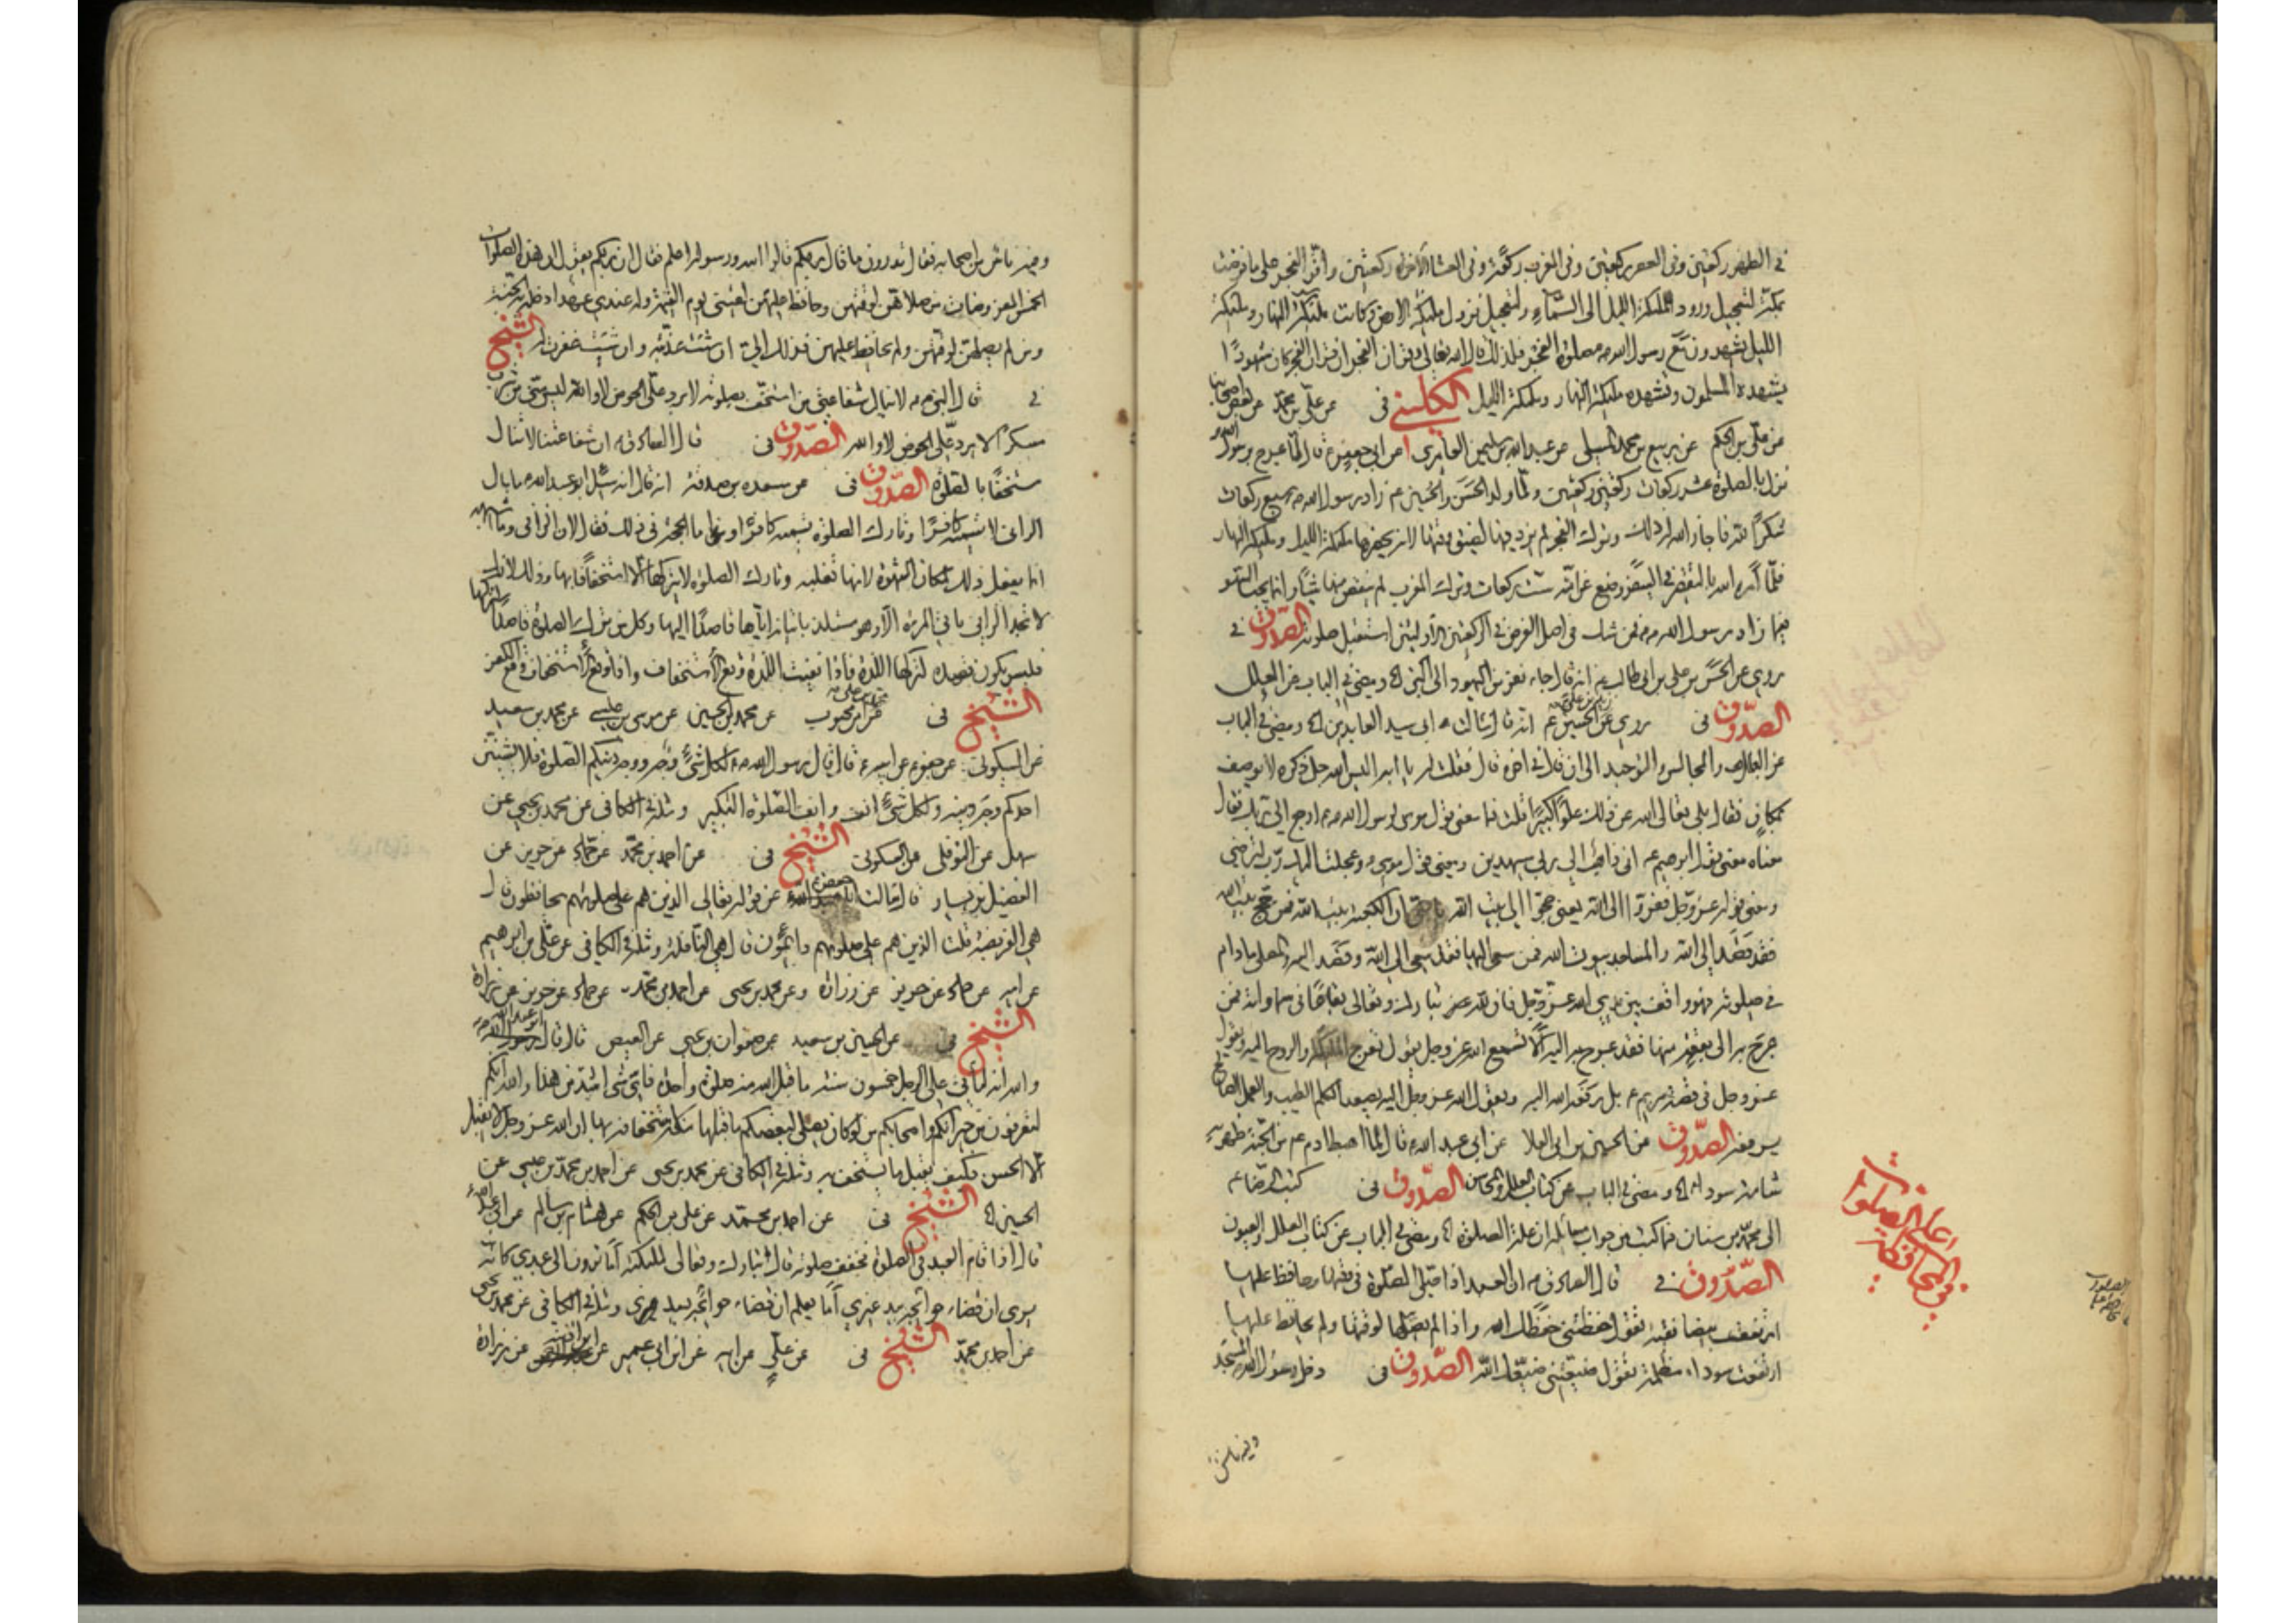 في الظهر ركعتين وفي العصر ركعتين وفي المغرب ركعة وفي العشاء الآخرة ركعتين وأقر الفجر على ما فرضت
بمكة لتعجيل ورود ملئكة الليل الى السماء ولتعجيل نزول ملئكة الارض وكانت ملئكة النهار وملئكة
الليل يشهدون مع رسول الله ص صلوة الفجر فلذلك قال الله تعالى وقران الفجر ان قران الفجر كان مشهودا
يشهده المسلمون وتشهده ملئكة النهار وملئكة الليل الكليني في عن علي بن محمد عن بعض اصحابنا
عن علي بن الحكم عن ربيع بن محمد المسلي عن عبد الله بن سليمن العامري عن ابي جعفر ع قال لما عرج برسول الله
نزل بالصلوة عشر ركعات ركعتين ركعتين ولما ولد الحسن والحسين ع زاد رسول الله ص سبع ركعات
شكرا لله فاجاز الله له ذلك وترك الفجر لم يزد فيها لضيق وقتها لانه يحضرها ملئكة الليل وملئكة النهار
فلما أمره الله بالتقصير في السفر وضع عن امته ست ركعات وترك المغرب لم ينقص منها شيئا وانما يجب السهو
فيما زاد رسول الله ص فمن شك في اصل الفرض في الركعتين الاوليتين استقبل صلوته الصدوق في
روي عن الحسن بن علي بن ابي طالب ع انه قال جاء نفر من اليهود الى النبي ومضى في الباب عن العلل
الصدوق في روي عن زيد بن علي بن الحسين ع انه قال سالت ابي سيد العابدين ومضى في الباب
عن العلل والمجالس والتوحيد الى ان قال في اخره قال فقلت له يا ابه اليس الله جل ذكره لا يوصف
بمكان فقال بلى تعالى الله عن ذلك علوا كبيرا قلت فما معنى قول موسى لرسول الله ص ارجع الى ربك فقال
معناه معنى قول ابرهيم ع اني ذاهب الى ربي سيهدين ومعنى قول موسى وعجلت اليك رب لترضى
ومعنى قوله عز وجل ففروا الى الله يعني حجوا الى بيت الله يا بني ان الكعبة بيت الله فمن حج بيت الله
فقد قصد الى الله والمساجد بيوت الله فمن سعى اليها فقد سعى الى الله وقصد اليه والمصلي ما دام
في صلوته فهو واقف بين يدي الله عز وجل فان لله تبارك وتعالى بقاعا في سماواته فمن
عرج به الى بقعة منها فقد عرج به اليه ألا تسمع الله عز وجل يقول تعرج الملئكة والروح اليه ويقول
عز وجل في قصة عيسى بن مريم ع بل رفعه الله اليه ويقول الله عز وجل اليه يصعد الكلم الطيب والعمل الصالح
يرفعه الصدوق عن الحسين بن ابي العلا عن ابي عبد الله ع قال لما اهبط ادم ع من الجنة ظهرت
شامة سوداء ومضى في الباب عن كتاب العلل والمحاسن الصدوق في كتب الرضا ع
الى محمد بن سنان فيما كتب من جواب مسائله ان علة الصلوة ومضى في الباب عن كتاب العلل والعيون
الصدوق في قال الصادق ع ان العبد اذا صلى الصلوة في وقتها وحافظ عليها
ارتفعت بيضاء نقية تقول حفظتني حفظك الله واذا لم يصلها لوقتها ولم يحافظ عليها
ارتفعت سوداء مظلمة تقول ضيعتني ضيعك الله الصدوق في دخل رسول الله المسجد
وفيه ناس
في المحافظة
على الصلوات
وفيه ناس من اصحابه فقال تدرون ما قال ربكم قالوا الله ورسوله اعلم فقال ان ربكم يقول ان هذه الصلوات
الخمس المفروضات من صلاهن لوقتهن وحافظ عليهن لقيني يوم القيمة وله عندي عهد ادخله به الجنة
ومن لم يصلهن لوقتهن ولم يحافظ عليهن فذلك الي ان شئت عذبته وان شئت غفرت له الشيخ
في قال النبي ص لا ينال شفاعتي من استخف بصلوته لا يرد علي الحوض لا والله ليس مني من شرب
مسكرا لا يرد علي الحوض لا والله الصدوق في قال الصادق ع ان شفاعتنا لا تنال
مستخفا بالصلوة الصدوق في عن مسعدة بن صدقة انه قال سئل ابو عبد الله ع ما بال
الزاني لا تسميه كافرا وتارك الصلوة تسميه كافرا وما الحجة في ذلك فقال لان الزاني وما اشبهه
انما يفعل ذلك لمكان الشهوة لانها تغلبه وتارك الصلوة لا يتركها الا استخفافا بها وذلك لانك
لا تجد الزاني ياتي المرءة الا وهو مستلذ باتيانه اياها قاصدا اليها وكل من ترك الصلوة قاصدا لتركها
فليس يكون قصده لتركها اللذة فاذا نفيت اللذة وقع الاستخفاف واذا وقع الاستخفاف وقع الكفر
الشيخ في محمد بن علي بن محبوب عن محمد بن الحسين عن موسى بن عيسى عن محمد بن سعيد
عن السكوني عن جعفر عن ابيه ع قال قال رسول الله ص لكل شئ وجه ووجه دينكم الصلوة فلا يشينن
احدكم وجه دينه ولكل شئ انف وانف الصلوة التكبير ومثله في الكافي عن محمد بن يحيى عن
سهل عن النوفلي عن السكوني الشيخ في عن احمد بن محمد عن حماد عن حريز عن
الفضيل بن يسار قال سالت ابا جعفر ع عن قوله تعالى الذين هم على صلوتهم يحافظون قال
هي الفريضة قلت الذين هم على صلوتهم دائمون قال هي النافلة ومثله في الكافي عن علي بن ابرهيم
عن ابيه عن حماد عن حريز عن زرارة وعن محمد بن يحيى عن احمد بن محمد عن حماد عن حريز عن زرارة
الشيخ في عن الحسين بن سعيد عن صفوان بن يحيى عن العيص قال قال ابو عبد الله
والله انه لياتي على الرجل خمسون سنة ما قبل الله منه صلوة واحدة فاي شئ اشد من هذا والله انكم
لتعرفون من جيرانكم واصحابكم من لو كان يصلي لبعضكم ما قبلها منه لاستخفافه بها ان الله عز وجل لا يقبل
الا الحسن فكيف يقبل ما يستخف به ومثله في الكافي عن محمد بن يحيى عن احمد بن محمد بن عيسى عن
الحسين الشيخ في عن احمد بن محمد عن علي بن الحكم عن هشام بن سالم عن ابي عبد الله
قال اذا قام العبد في الصلوة فخفف صلوته قال تبارك وتعالى لملئكته أما ترون الى عبدي كانه
يرى ان قضاء حوائجه بيد غيري أما يعلم ان قضاء حوائجه بيدي ومثله في الكافي عن محمد بن يحيى
عن احمد بن محمد الشيخ في عن علي عن ابيه عن ابن ابي عمير عن ابن اذينة عن زرارة